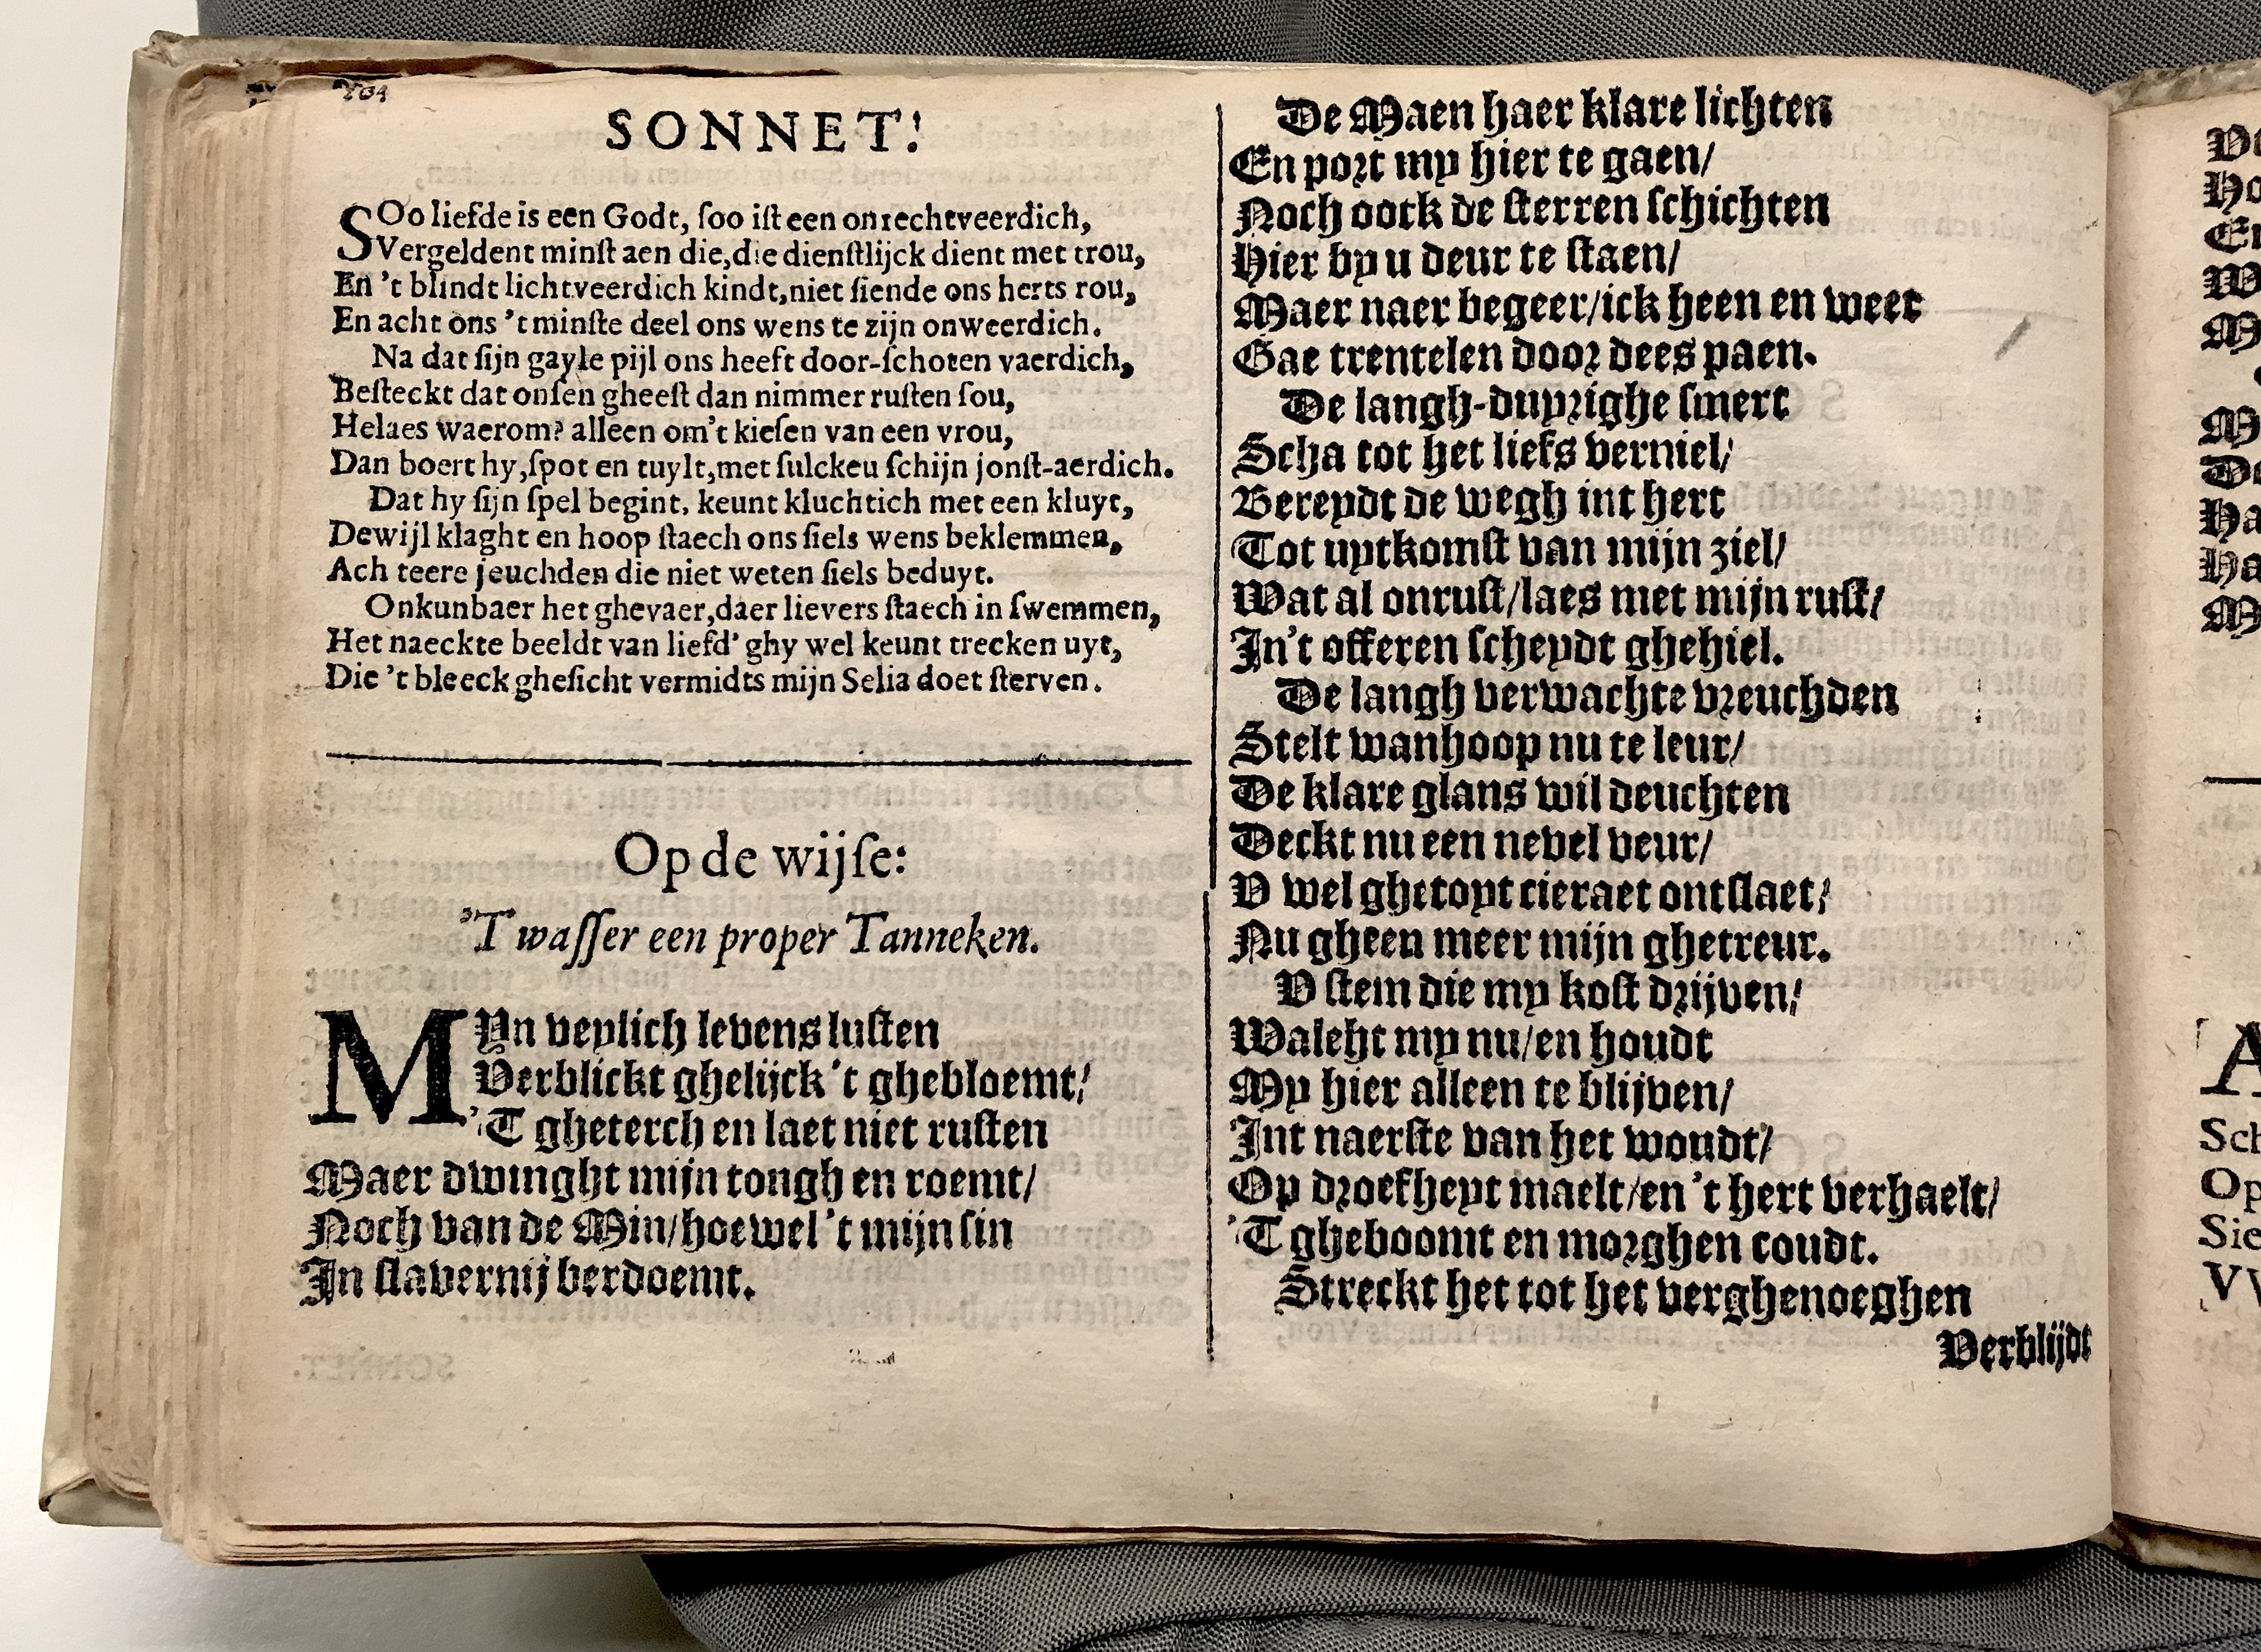 SONNET!
SOo liefde is een Godt, soo ist een onrechtveerdich,
Vergeldent minst aen die,die dienstlijck dient met trou,
En 't blindt lichtveerdich kindt,niet siende ons herts rou,
En acht ons 't minste deel ons wens te zijn onweerdich.
Na dat sijn gayle pijl ons heeft door-schoten vaerdich,
Besteckt dat onsen gheest dan nimmer rusten sou,
Helaes waerom? alleen om't kiesen van een vrou,
Dan boert hy,spot en tuylt,met sulckeu schijn jonst-aerdich.
Dat hy sijn spel begint, keunt kluchtich met een kluyt,
Dewijl klaght en hoop staech ons siels wens beklemmen,
Ach teere jeuchden die niet weten siels beduyt.
Onkunbaer het ghevaer,daer lievers staech in swemmen,
Het naeckte beeldt van liefd' ghy wel keunt trecken uyt,
Die 't bleeck ghesicht vermidts mijn Selia doet sterven.
Op de wijse:
'T wasser een proper Tanneken.
MYn veylich levens lusten
Verblickt ghelijck 't ghebloemt/
'T gheterch en laet niet rusten
Maer dwinght mijn tongh en roemt/
Noch van de Min/hoewel 't mijn sin
In slavernij verdoemt.
De Maen haer klare lichten
En port my hier te gaen/
Noch oock de sterren schichten
Hier by u deur te staen/
Maer naer begeer/ick heen en weer
Gae trentelen door dees paen.
De langh-duyrighe smert
Scha tot het liefs verniel/
Bereydt de wegh int hert
Tot uytkomst van mijn ziel/
Wat al onrust/laes met mijn rust/
In't offeren scheydt ghehiel.
De langh verwachte vreuchden
Stelt wanhoop nu te leur/
De klare glans wil deuchten
Deckt nu een nevel veur/
V wel ghetoyt cieraet ontslaet/
Nu gheen meer mijn ghetreur.
V stem die my kost drijven/
Waleht my nu/en houdt
My hier alleen te blijven/
Int naerste van het woudt/
Op droefheyt maelt/en 't hert verhaelt/
'T gheboomt en morghen coudt.
Streckt het tot het verghenoeghen
Verblijdt